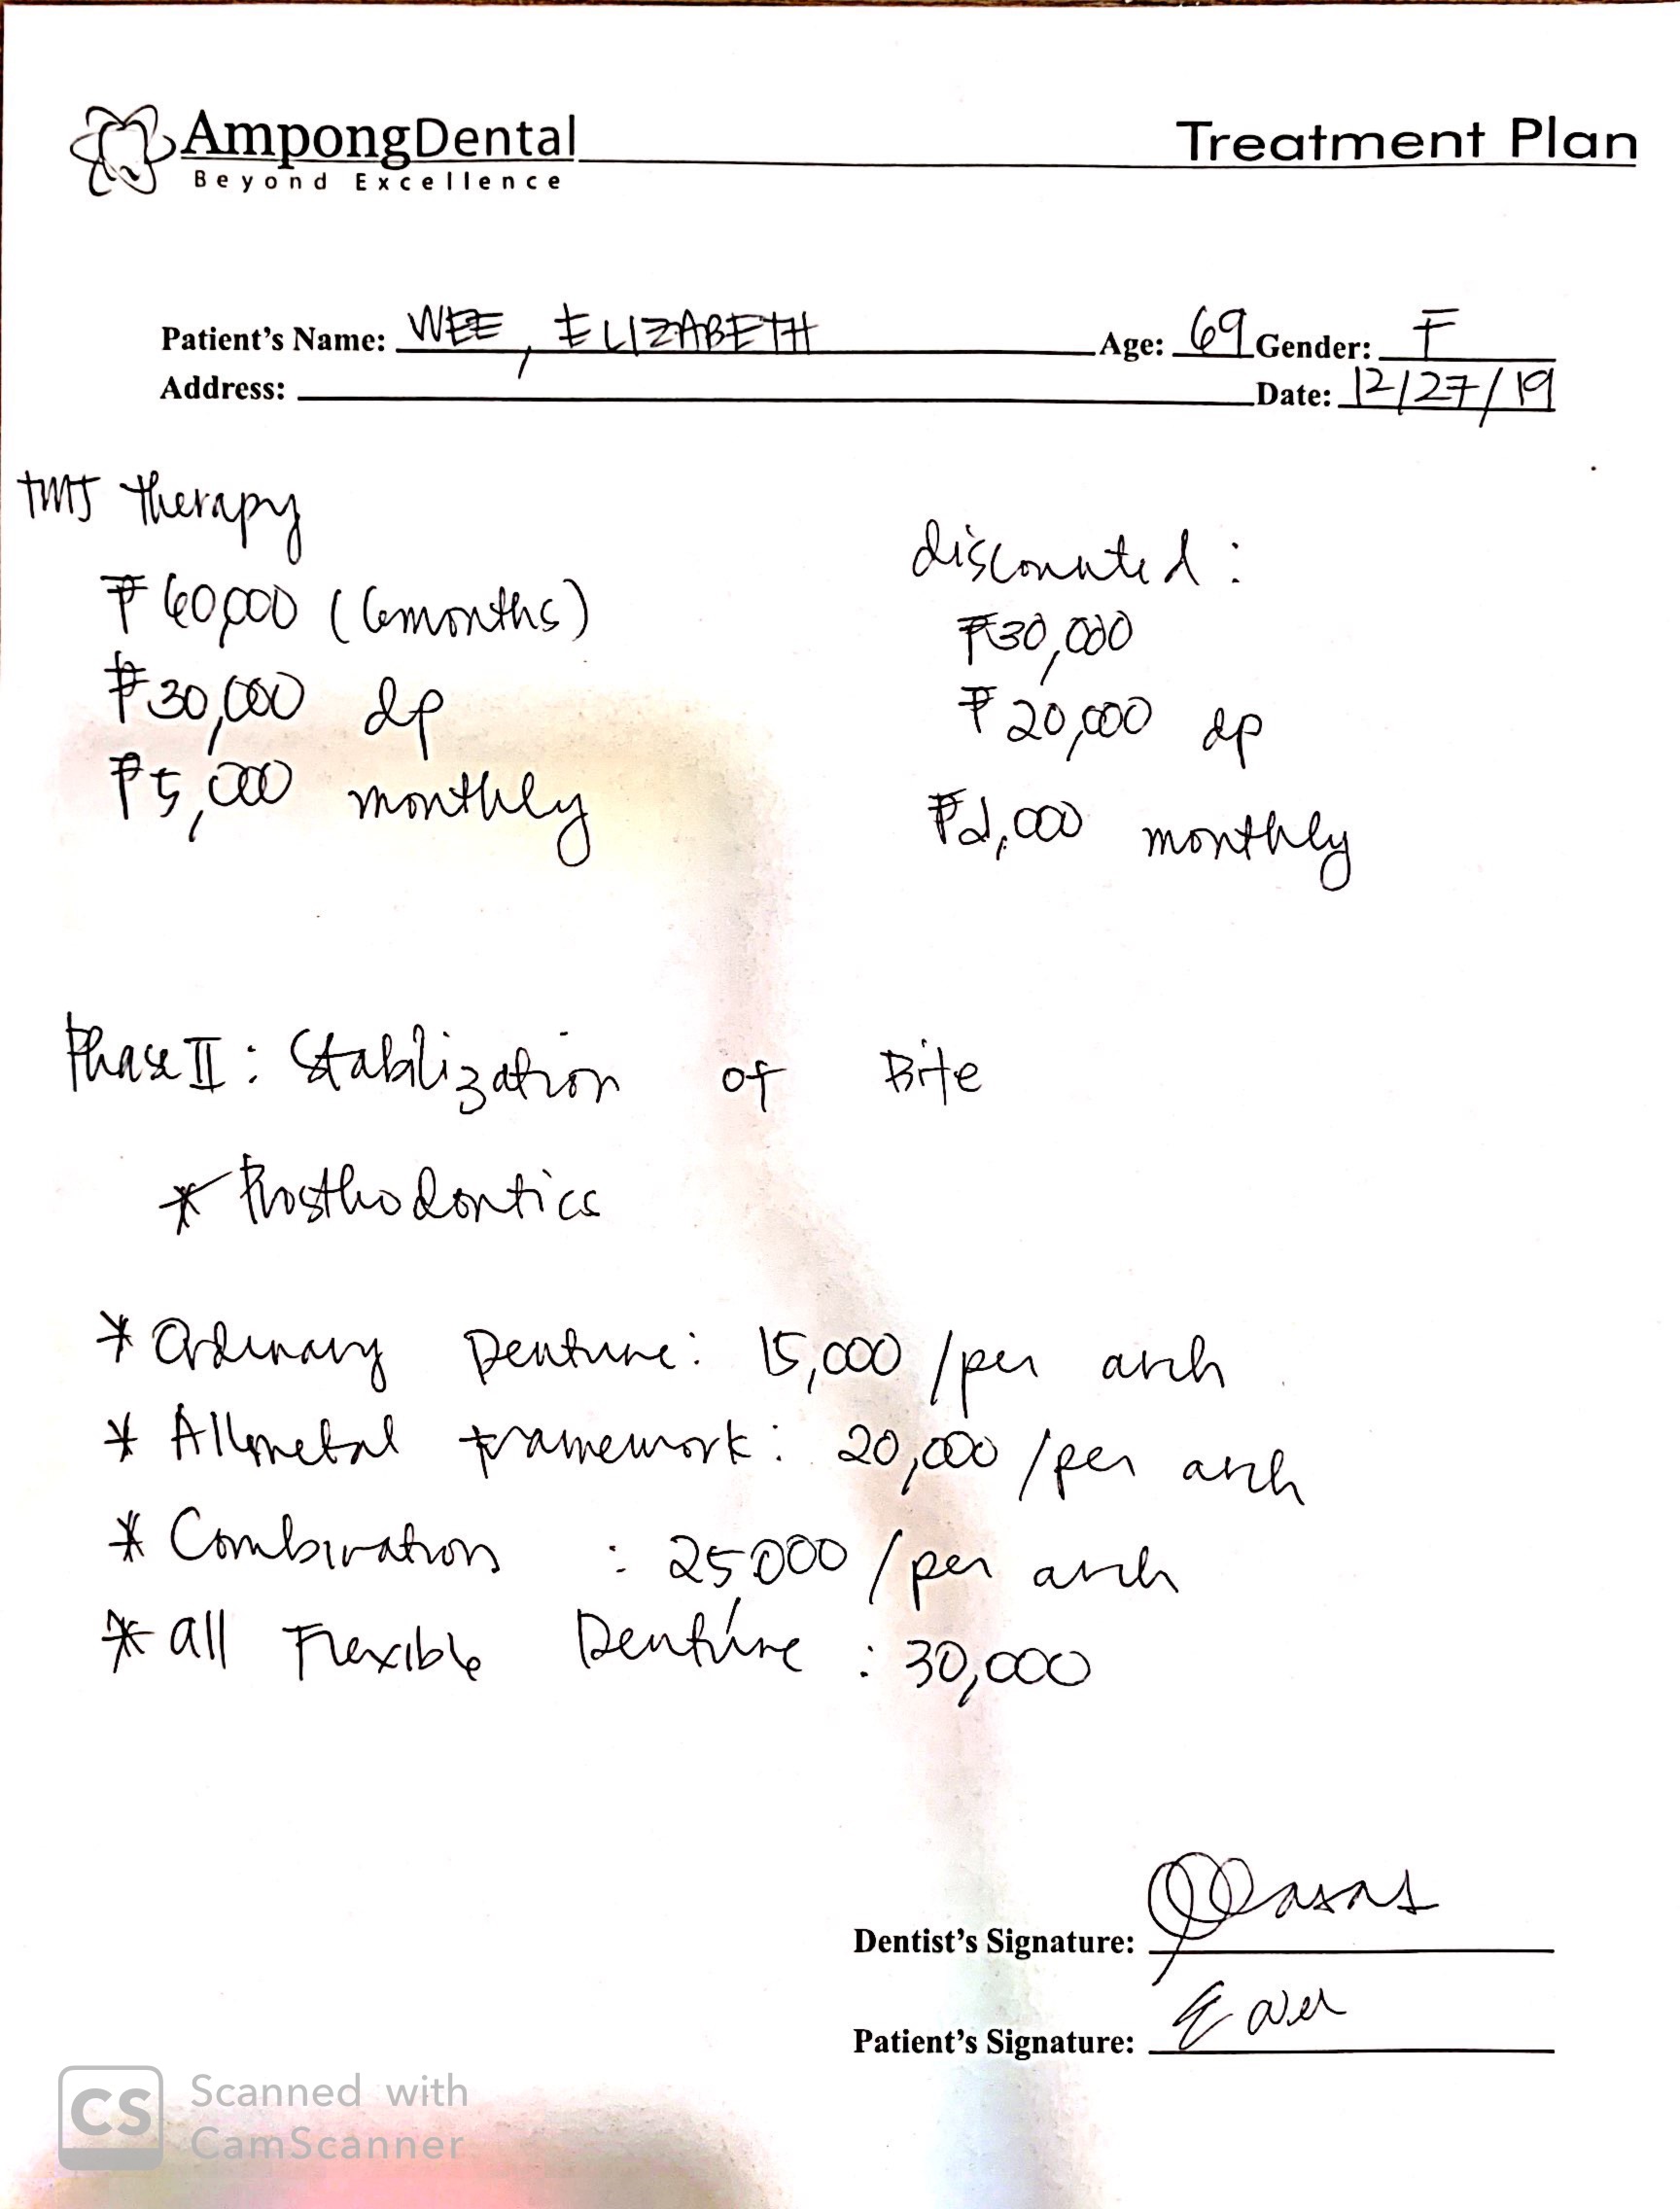 AmpongDental
Beyond Excellence
Treatment Plan
Patient's Name: WEE, ELIZABETH Age: 69 Gender: F
Address: Date: 12/27/19
TMJ therapy
₱60,000 (6months)
₱30,000 dp
₱5,000 monthly
discounted:
₱30,000
₱20,000 dp
₱2,000 monthly
Phase II: Stabilization of Bite
* Prosthodontics
* Ordinary Denture: 15,000 /per arch
* All metal framework: 20,000 /per arch
* Combination : 25000 /per arch
* all Flexible Denture : 30,000
Dentist's Signature:
Patient's Signature:
CS Scanned with
CamScanner